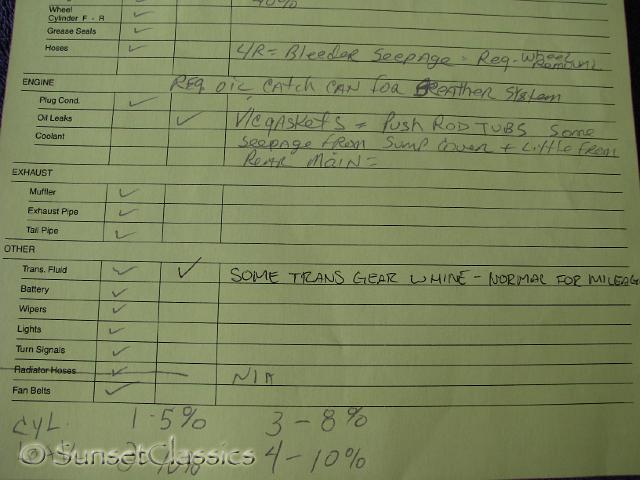 40%
Wheel
Cylinder F - R
Grease Seals
Hoses L/R = Bleeder Seepage - Req. Wheel Removal
ENGINE REQ OIL CATCH CAN FOR BREATHER SYSTEM
Plug Cond.
Oil Leaks V/C GASKETS = PUSH ROD TUBS Some
Coolant Seepage From Sump Cover + Little From
REAR MAIN =
EXHAUST
Muffler
Exhaust Pipe
Tail Pipe
OTHER
Trans. Fluid SOME TRANS GEAR WHINE - NORMAL FOR MILEAG
Battery
Wipers
Lights
Turn Signals
Radiator Hoses N/A
Fan Belts
CYL. 1-5% 3-8%
2 10% 4-10%
© SunsetClassics